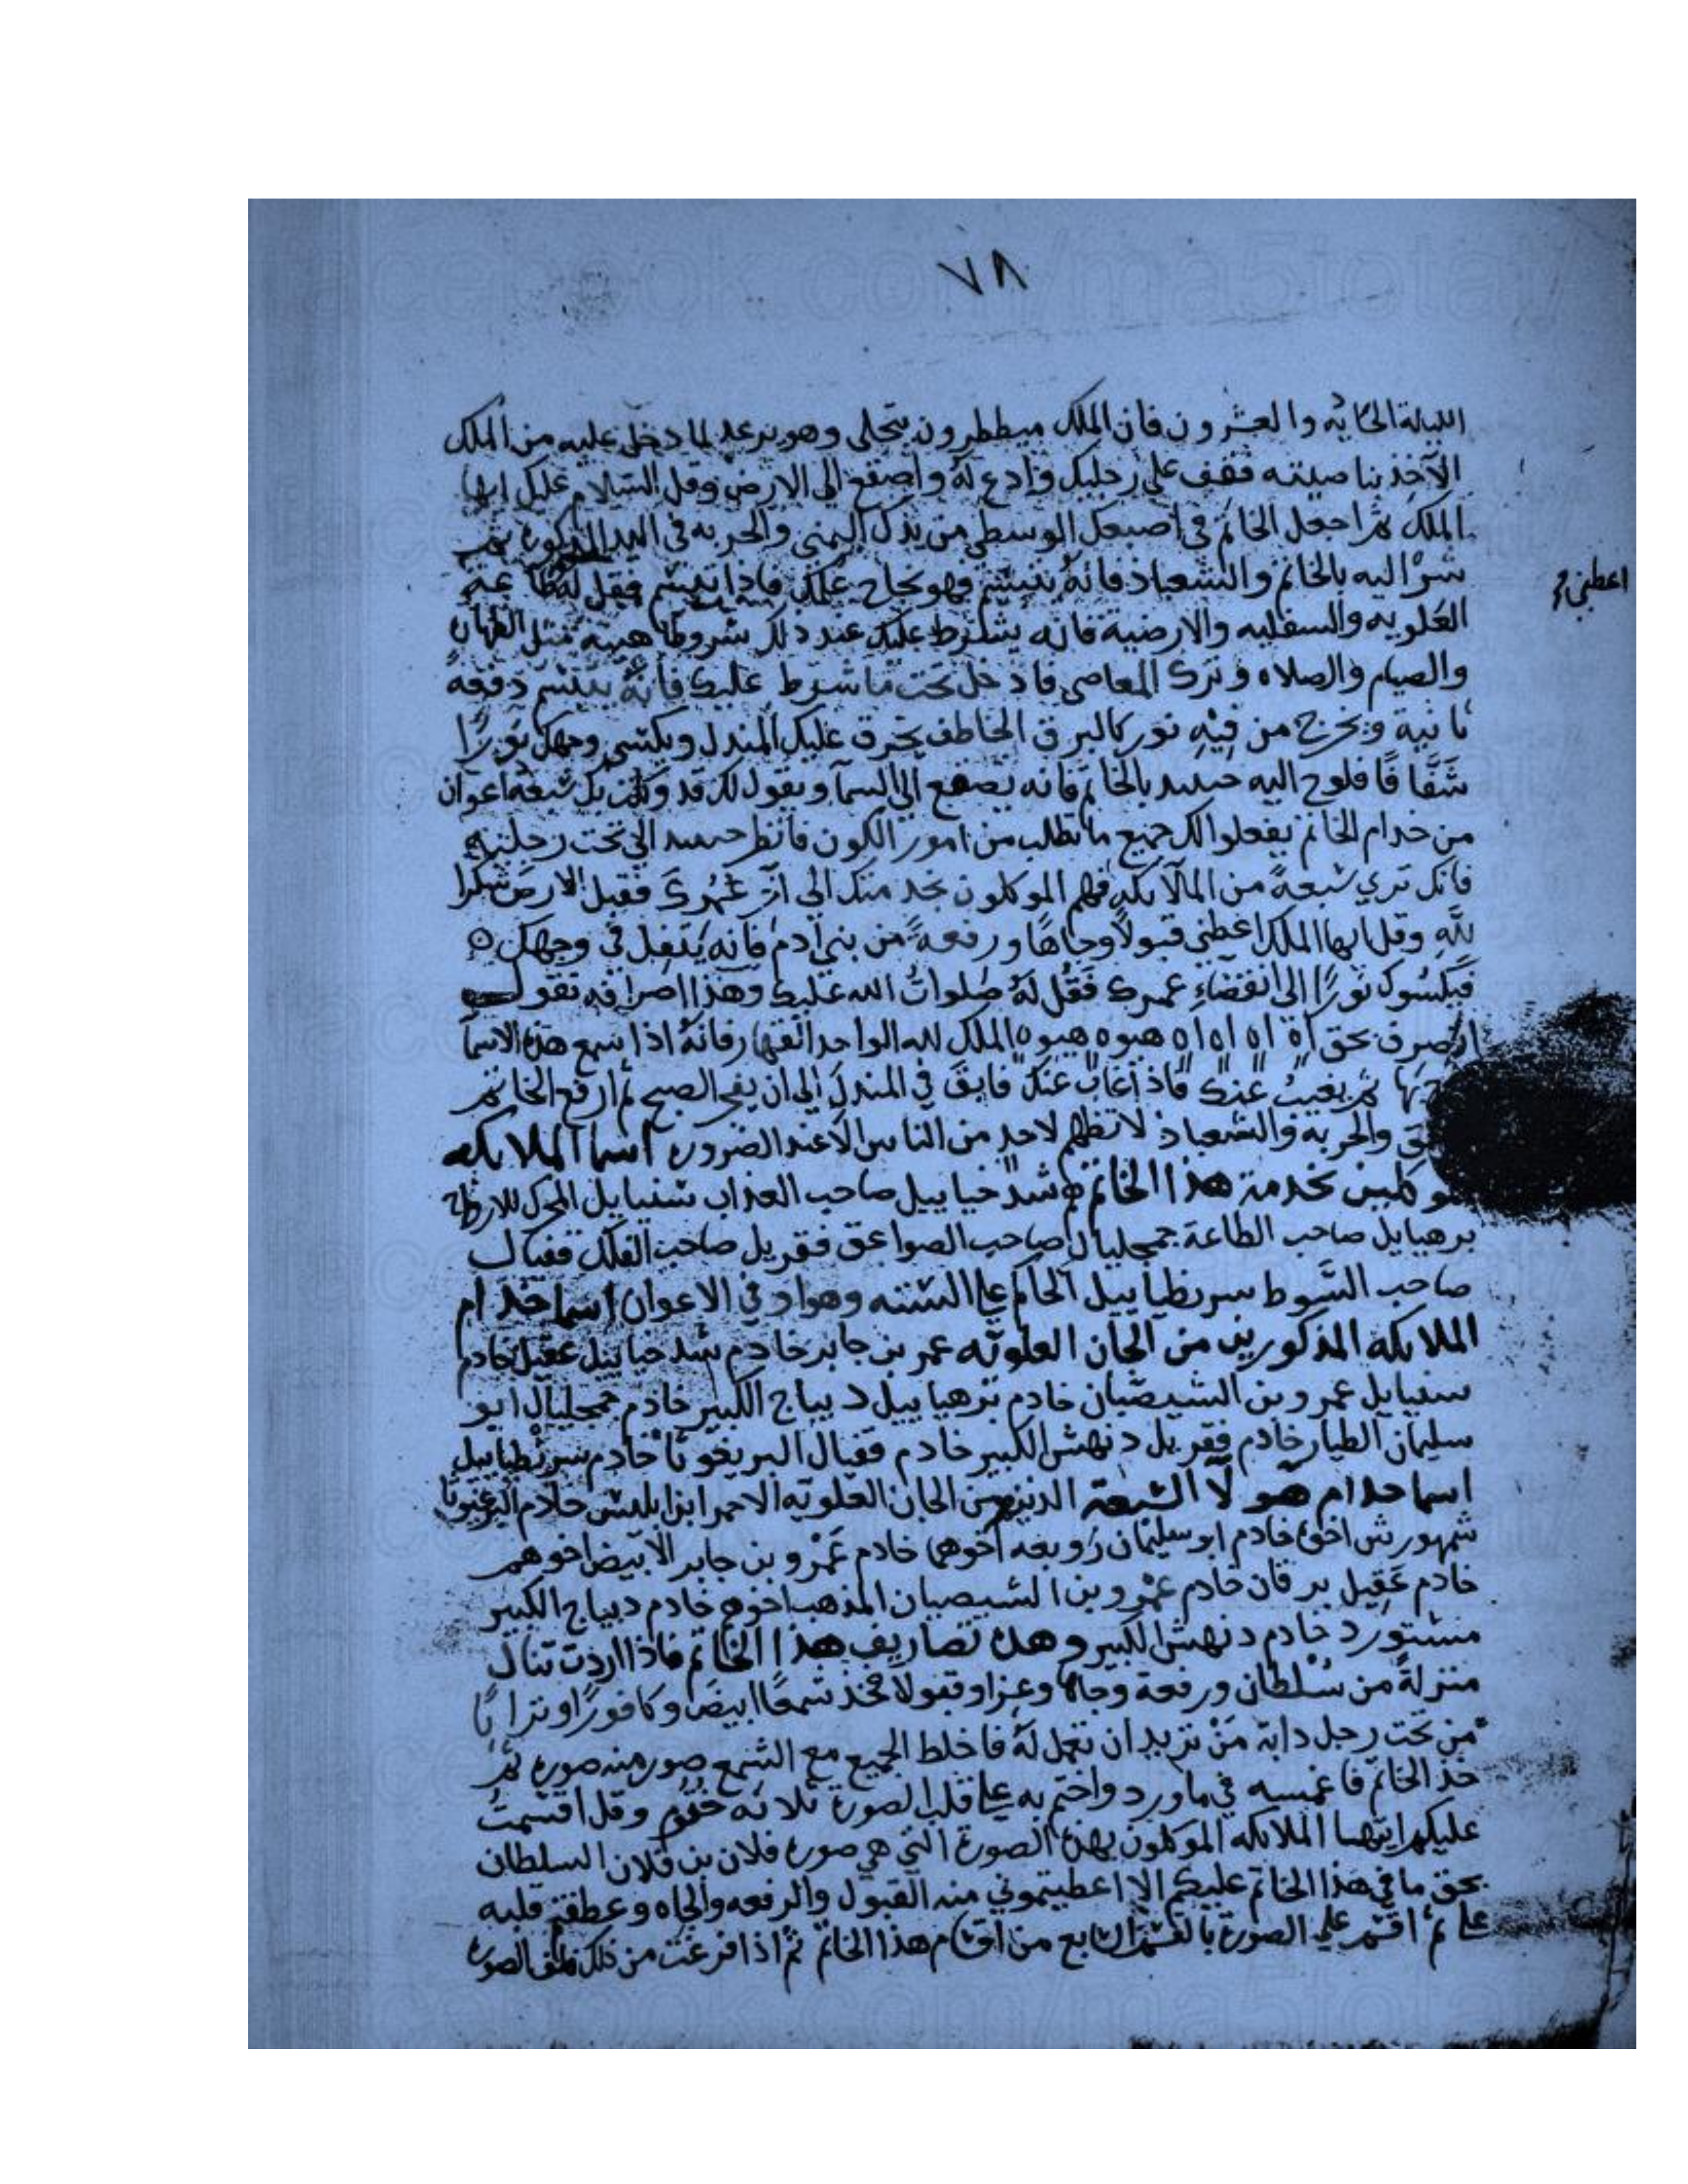 ٧٨
الليلة الحاديه والعشرون فان الملك ميططرون يتجلى وهو يرعد لما دخل عليه من الملك
الآخذ بناصيته فقف على رجليك وادع له واصقع الى الارض وقل السلام عليك ايها
الملك ثم اجعل الخاتم في اصبعك الوسطى من يدك اليمنى والحربه في اليد
شر اليه بالخاتم والشعباذ فانه يتبسم فهو نجاح عملك فاذا تبسم فقل له
اعطني
العلويه والسفليه والارضية فانه يشترط عليك عند ذلك شروطا هينة مثل الطهارة
والصيام والصلاه وترك المعاصي فادخل تحت ما شرط عليك فانه يتبسم دفعة
ثانية ويخرج من فيه نور كالبرق الخاطف يخرق عليك المندل ويكتسي وجهك نورًا
شفَّافًا فلوح اليه حينيد بالخاتم فانه يصقع الى السما ويقول لك قد وكلت بك سبعة اعوان
من خدام الخاتم يفعلوا لك جميع ما تطلب من امور الكون فانظر حينيد الى تحت رجليه
فانك تري سبعةً من الملايكة فهم الموكلون بخدمتك الى آخر عمرك فقبل الارض شكرا
لله وقل ايها الملك اعطني قبولاً وجاهًا ورفعةً من بني آدم فانه يتفل في وجهك ه
فيكسوك نورًا الى انقضاء عمرك فقل له صلوات الله عليك وهذا اصرافه تقول
انصرف بحق اه اه اه اه اه هيوه هيوه الملك لله الواحد القهار فانه اذا سمع هذه الاسما
ثم يغيب عنك فاذا غاب عنك فابق في المندل الى ان يفجر الصبح ثم ارفع الخاتم
والحربه والشعباذ لا تظهر لاحد من الناس الا عند الضروره اسما الملايكه
الموكلين بخدمة هذا الخاتم شدخياييل صاحب العذاب شنيايل المحرك للارياح
برهيايل صاحب الطاعة جمجليال صاحب الصواعق فقريل صاحب الفلك قفيال
صاحب السوط سرنطياييل الحاكم على الستة وهواد في الاعوان اسما خدام
الملايكه المذكورين من الجان العلويه عمر بن جابر خادم شدخياييل عقيل خادم
سنيايل عمرو بن الشيصبان خادم برهياييل ديباج الكبير خادم جمجليال ابو
سليمان الطيار خادم فقريل دنهش الكبير خادم قفيال البريغوثا خادم سرنطياييل
اسما خدام هولا السبعة الذين من الجان العلويه الاحمر ابن ابليس خادم البرغوثا
شمهورش اخوه خادم ابو سليمان زوبعه اخوهما خادم عمرو بن جابر الابيض اخوهم
خادم عقيل برقان خادم عمرو بن الشيصبان المذهب اخوهم خادم ديباج الكبير
منشتورد خادم دنهش الكبير وهذه تصاريف هذا الخاتم فاذا اردت تنال
منزلةً من سُلْطان ورفعة وجاه وعزا وقبولا فخذ شمعًا ابيض وكافورًا وترابًا
من تحت رجل دابة مَنْ تريد ان تعمل له فاخلط الجميع مع الشمع صور منه صوره ثم
خذ الخاتم فاغمسه في ماورد واختم به على قلب الصورة ثلاثه ختوم وقل اقسمت
عليكم ايتها الملايكه الموكلون بهذه الصورة التي هي صوره فلان بن فلان السلطان
بحق ما في هذا الخاتم عليكم الا اعطيتموني منه القبول والرفعه والجاه وعطفتم قلبه
على ثم اقسم على الصورة بالقسم السابع من اقسام هذا الخاتم ثم اذا فرغت من ذلك الصوره